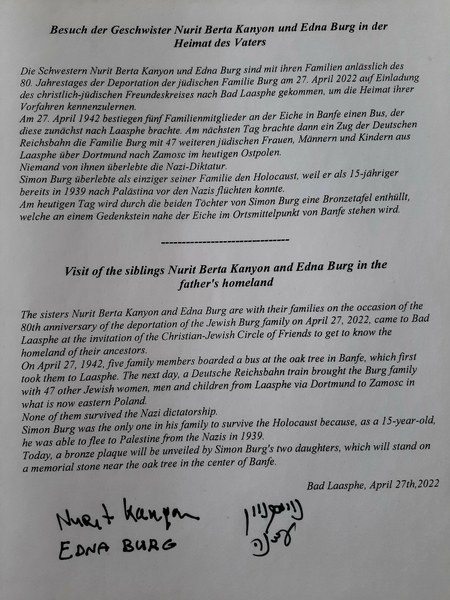 Besuch der Geschwister Nurit Berta Kanyon und Edna Burg in der
Heimat des Vaters
Die Schwestern Nurit Berta Kanyon und Edna Burg sind mit ihren Familien anlässlich des
80. Jahrestages der Deportation der jüdischen Familie Burg am 27. April 2022 auf Einladung
des christlich-jüdischen Freundeskreises nach Bad Laasphe gekommen, um die Heimat ihrer
Vorfahren kennenzulernen.
Am 27. April 1942 bestiegen fünf Familienmitglieder an der Eiche in Banfe einen Bus, der
diese zunächst nach Laasphe brachte. Am nächsten Tag brachte dann ein Zug der Deutschen
Reichsbahn die Familie Burg mit 47 weiteren jüdischen Frauen, Männern und Kindern aus
Laasphe über Dortmund nach Zamosc im heutigen Ostpolen.
Niemand von ihnen überlebte die Nazi-Diktatur.
Simon Burg überlebte als einziger seiner Familie den Holocaust, weil er als 15-jähriger
bereits in 1939 nach Palästina vor den Nazis flüchten konnte.
Am heutigen Tag wird durch die beiden Töchter von Simon Burg eine Bronzetafel enthüllt,
welche an einem Gedenkstein nahe der Eiche im Ortsmittelpunkt von Banfe stehen wird.
-------------------------------
Visit of the siblings Nurit Berta Kanyon and Edna Burg in the
father's homeland
The sisters Nurit Berta Kanyon and Edna Burg are with their families on the occasion of the
80th anniversary of the deportation of the Jewish Burg family on April 27, 2022, came to Bad
Laasphe at the invitation of the Christian-Jewish Circle of Friends to get to know the
homeland of their ancestors.
On April 27, 1942, five family members boarded a bus at the oak tree in Banfe, which first
took them to Laasphe. The next day, a Deutsche Reichsbahn train brought the Burg family
with 47 other Jewish women, men and children from Laasphe via Dortmund to Zamosc in
what is now eastern Poland.
None of them survived the Nazi dictatorship.
Simon Burg was the only one in his family to survive the Holocaust because, as a 15-year-old,
he was able to flee to Palestine from the Nazis in 1939.
Today, a bronze plaque will be unveiled by Simon Burg's two daughters, which will stand on
a memorial stone near the oak tree in the center of Banfe.
Bad Laasphe, April 27th,2022
Nurit Kanyon
EDNA BURG